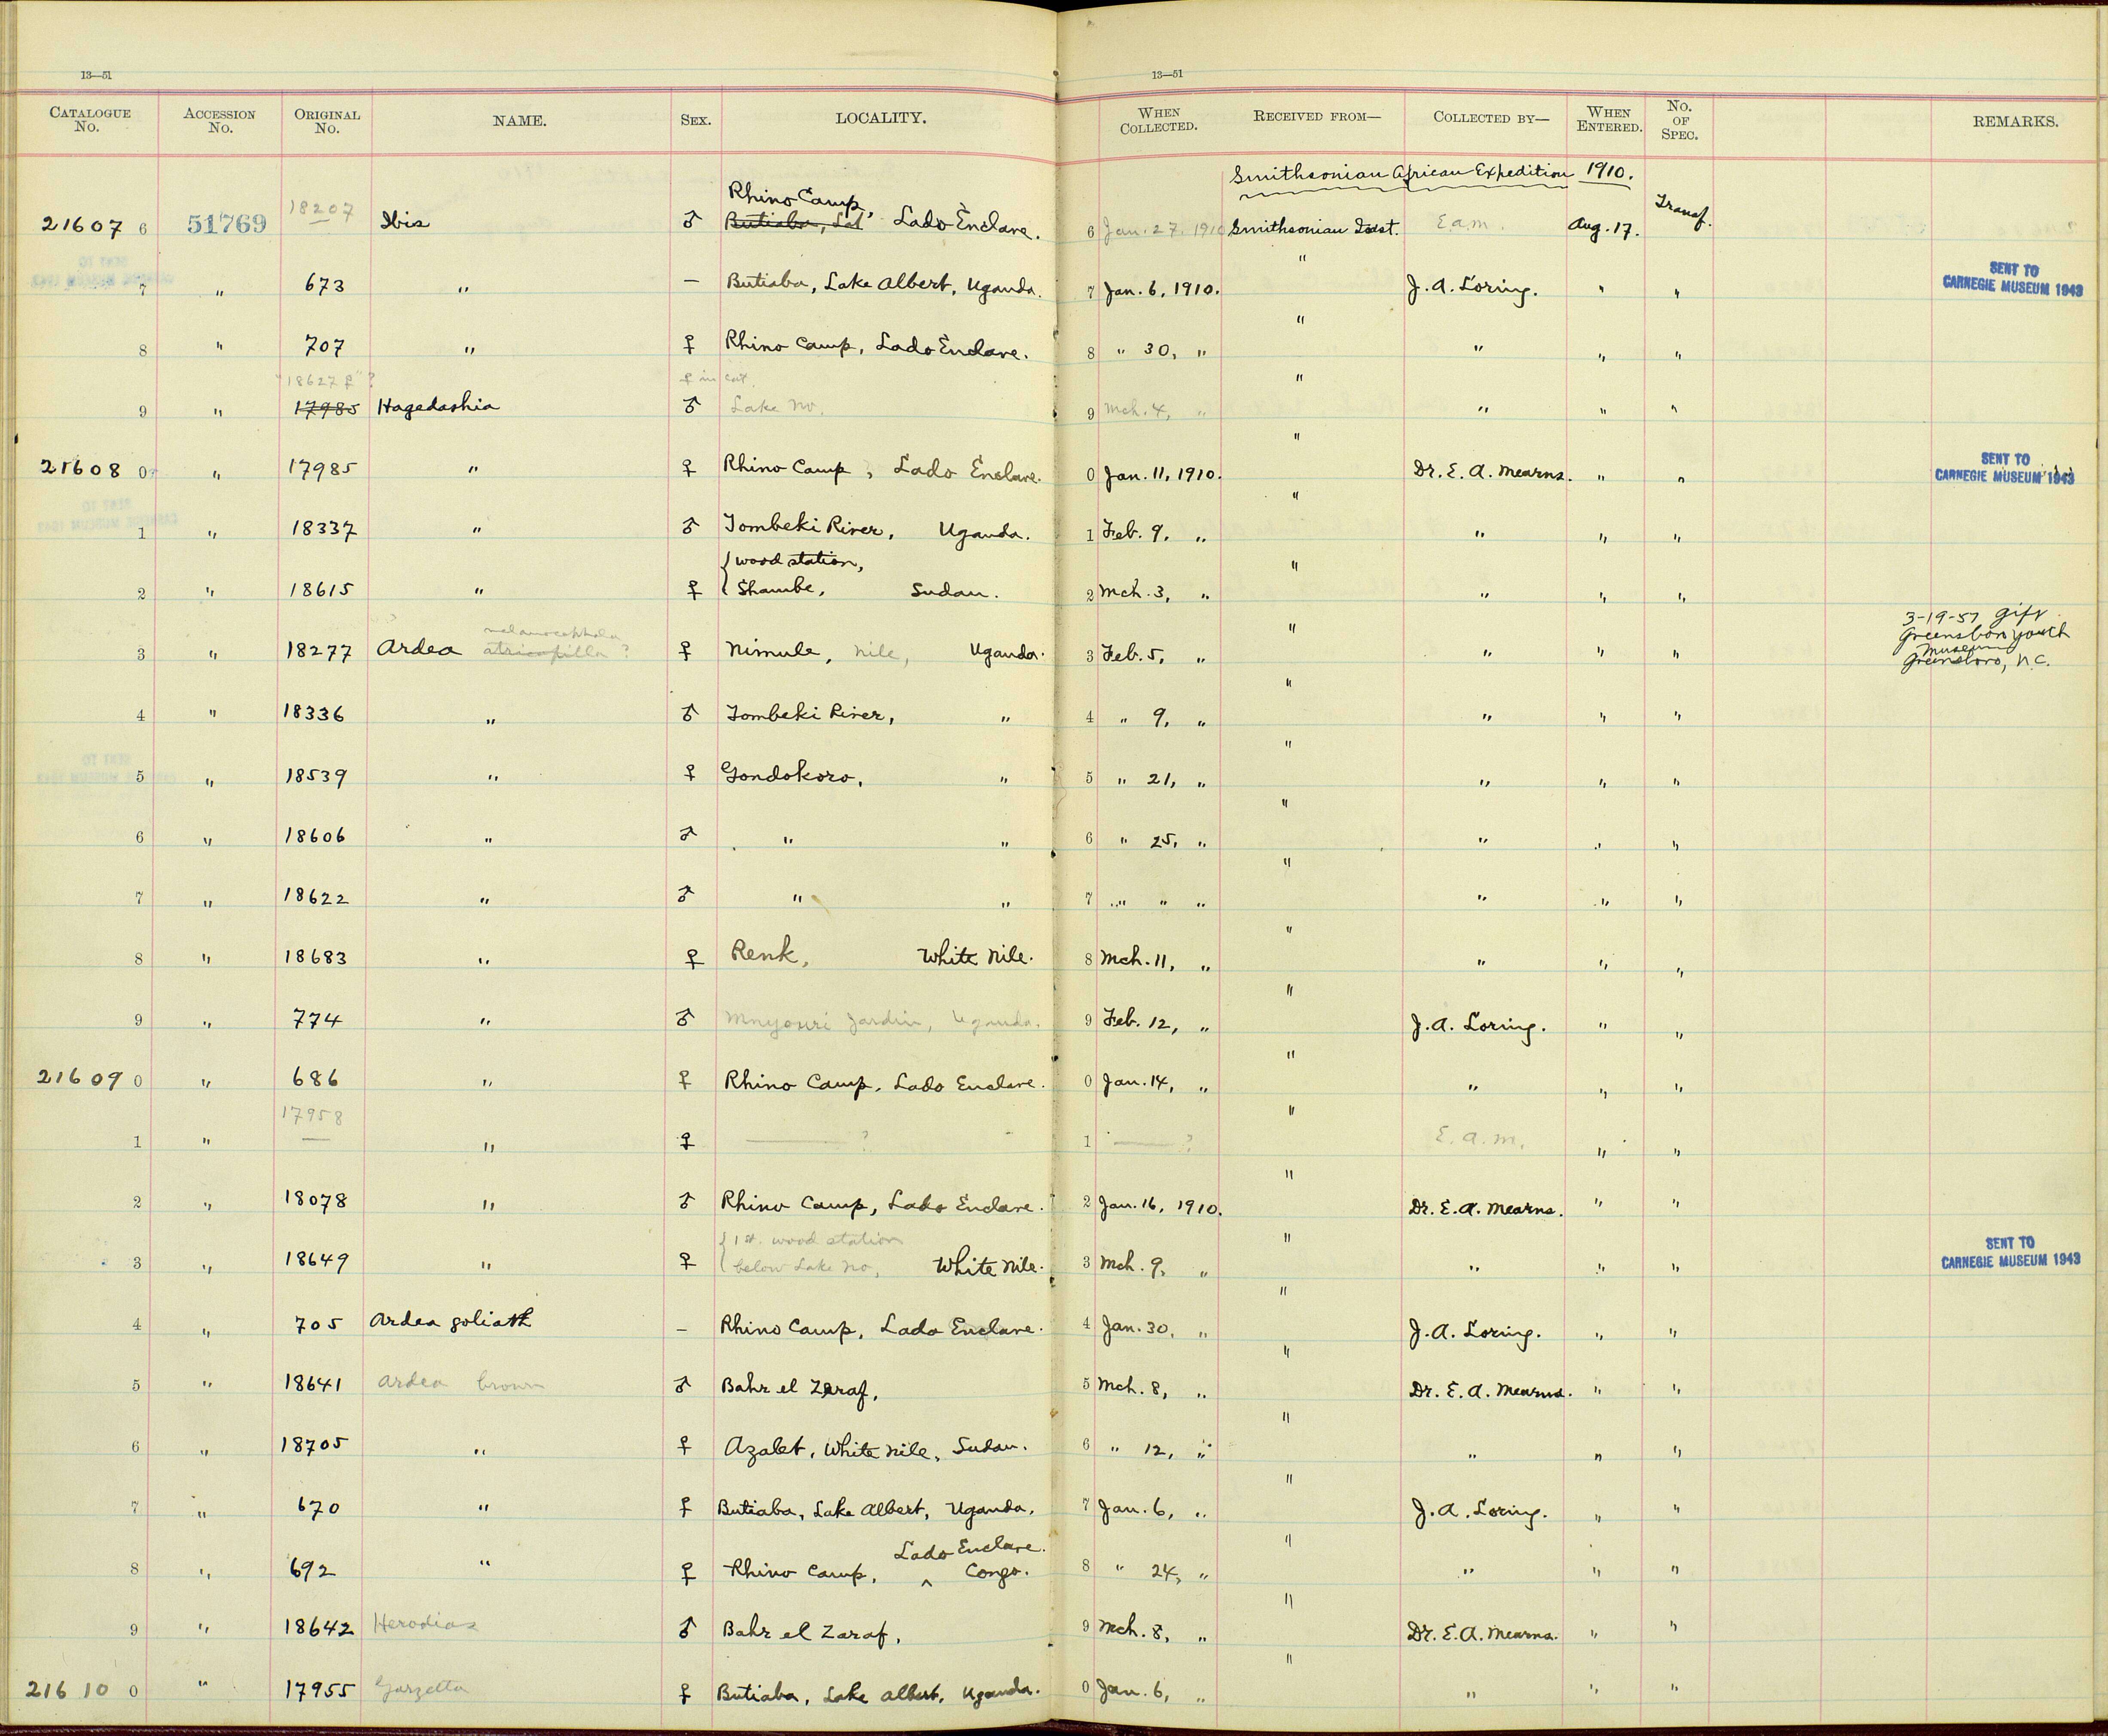 13—51 13—51
CATALOGUE No. ACCESSION No. ORIGINAL No. NAME. SEX. LOCALITY. WHEN COLLECTED. RECEIVED FROM— COLLECTED BY— WHEN ENTERED. No. OF SPEC. REMARKS.
Smithsonian African Expedition 1910.
21607 6 51769 18207 Ibis ♂ Rhino Camp, Butiaba, Lado Enclave. 6 Jan. 27. 1910 Smithsonian Inst. E.a.m. Aug. 17. Transf.
7 " 673 " — Butiaba, Lake Albert, Uganda. 7 Jan. 6, 1910. " J. A. Loring. " " SENT TO CARNEGIE MUSEUM 1943
8 " 707 " ♀ Rhino Camp, Lado Enclave. 8 " 30, " " " " "
"18627 ♀"? ♀ in cat.
9 " 17985 Hagedashia ♂ Lake No. 9 Mch. 4, " " " " "
21608 0 " 17985 " ♀ Rhino Camp, Lado Enclave. 0 Jan. 11, 1910. " Dr. E. A. Mearns. " " SENT TO CARNEGIE MUSEUM 1943
1 " 18337 " ♂ Tombeki River, Uganda. 1 Feb. 9, " " " " "
2 " 18615 " ♀ { wood station, Shambe, Sudan. 2 Mch. 3, " " " " "
3 " 18277 Ardea melanocephala atricapilla ? ♀ Nimule, Nile, Uganda. 3 Feb. 5, " " " " " 3-19-57 gift Greensboro youth museum Greensboro, N.C.
4 " 18336 " ♂ Tombeki River, " 4 " 9, " " " " "
5 " 18539 " ♀ Gondokoro, " 5 " 21, " " " " "
6 " 18606 " ♂ " " 6 " 25, " " " " "
7 " 18622 " ♂ " " 7 " " " " " " "
8 " 18683 " ♀ Renk, White Nile. 8 Mch. 11, " " " " "
9 " 774 " ♂ Uganda. 9 Feb. 12, " " J. A. Loring. " "
21609 0 " 686 " ♀ Rhino Camp, Lado Enclave. 0 Jan. 14, " " " " "
1 " 17958 — " ♀ —— ? 1 —— ? " E. a. m. " "
2 " 18078 " ♂ Rhino Camp, Lado Enclave. 2 Jan. 16, 1910. " Dr. E. A. Mearns. " "
3 " 18649 " ♀ { 1st. wood station below Lake No, White Nile. 3 Mch. 9, " " " " " SENT TO CARNEGIE MUSEUM 1943
4 " 705 Ardea goliath — Rhino Camp, Lado Enclave. 4 Jan. 30, " " J. A. Loring. " "
5 " 18641 Ardea brown ♂ Bahr el Zaraf, 5 Mch. 8, " " Dr. E. A. Mearns. " "
6 " 18705 " ♀ Azalet, White Nile, Sudan. 6 " 12, " " " " "
7 " 670 " ♀ Butiaba, Lake Albert, Uganda. 7 Jan. 6, " " J. A. Loring. " "
8 " 692 " ♀ Rhino Camp, ^ Lado Enclave. Congo. 8 " 24, " " " " "
9 " 18642 Herodias ♂ Bahr el Zaraf, 9 Mch. 8, " " Dr. E. A. Mearns. " "
21610 0 " 17955 Garzetta ♀ Butiaba, Lake Albert, Uganda. 0 Jan. 6, " " " " "